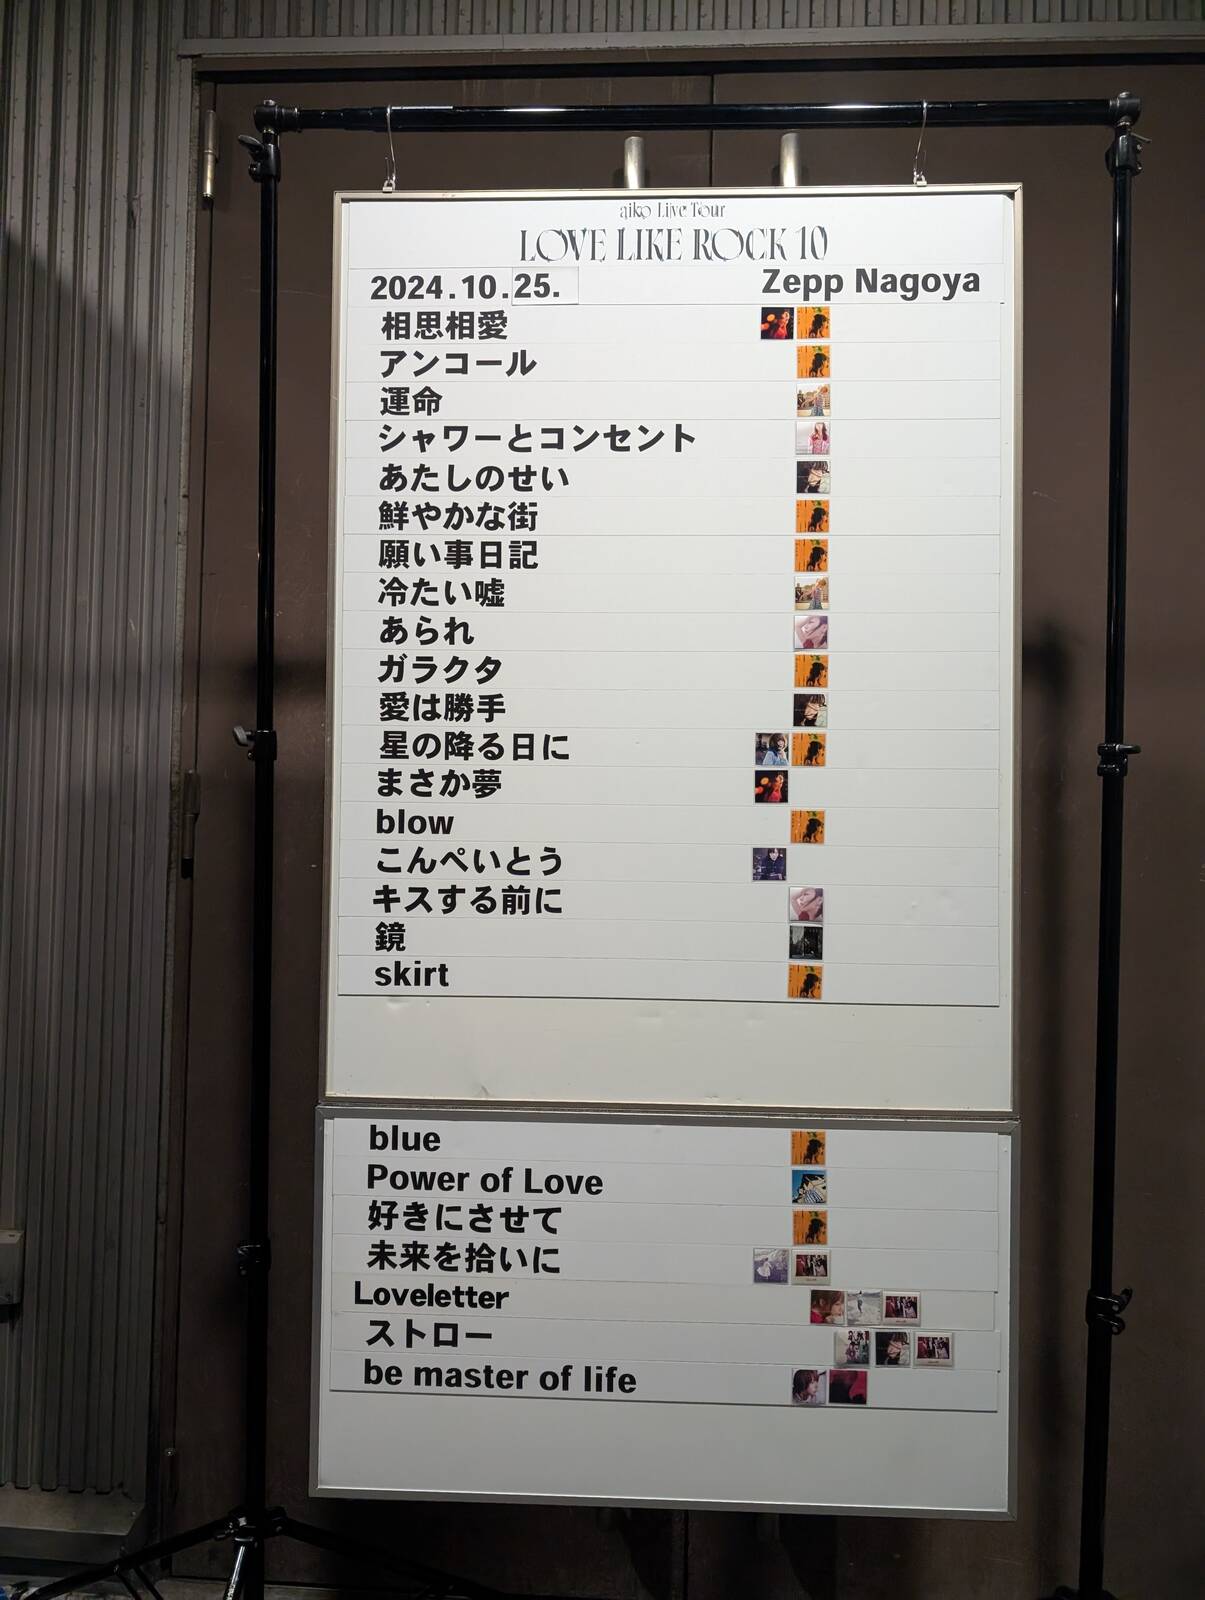 aiko Live Tour
LOVE LIKE ROCK 10
2024.10.25. Zepp Nagoya
相思相愛
アンコール
運命
シャワーとコンセント
あたしのせい
鮮やかな街
願い事日記
冷たい嘘
あられ
ガラクタ
愛は勝手
星の降る日に
まさか夢
blow
こんぺいとう
キスする前に
鏡
skirt
blue
Power of Love
好きにさせて
未来を拾いに
Loveletter
ストロー
be master of life